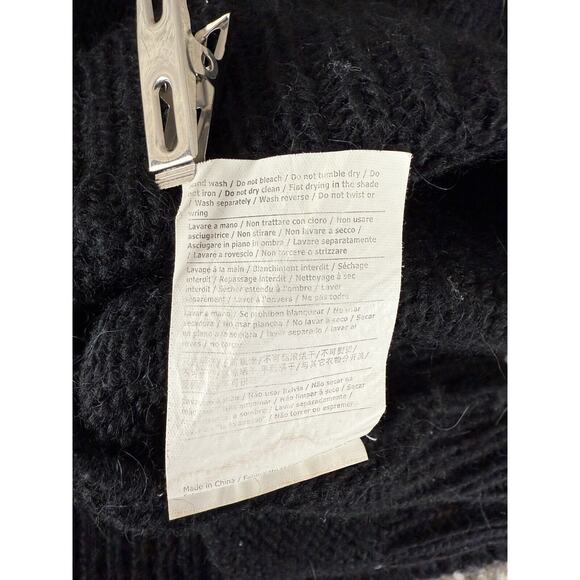 wash / Do not bleach / Do not tumble dry / Do
not iron / Do not dry clean / Flat drying in the shade
/ Wash separately / Wash reverse / Do not twist or
wring
Lavare a mano / Non trattare con cloro / Non usare
asciugatrice / Non stirare / Non lavare a secco /
Asciugare in piano in ombra / Lavare separatamente
/ Lavare a rovescio / Non torcere o strizzare
Lavage à la main / Blanchiment interdit / Séchage
interdit / Repassage interdit / Nettoyage à sec
interdit / Sécher étendu à l'ombre / Laver
séparément / Laver à l'envers / Ne pas tordre
Lavar a mano / Se prohiben blanquear / No usar
secadora / No usar plancha / No lavar a seco / Secar
en plano a la sombra / lavar separado / lavar al
reves / no torcer
不可翻滚烘干/不可熨烫/
与其它衣物分开洗/
Lavar a mão / Não usar lixívia / Não secar na
/ Não limpar à seco / Secar
a sombra / Lavar separadamente /
/ Não torcer ou espremer
Made in China /